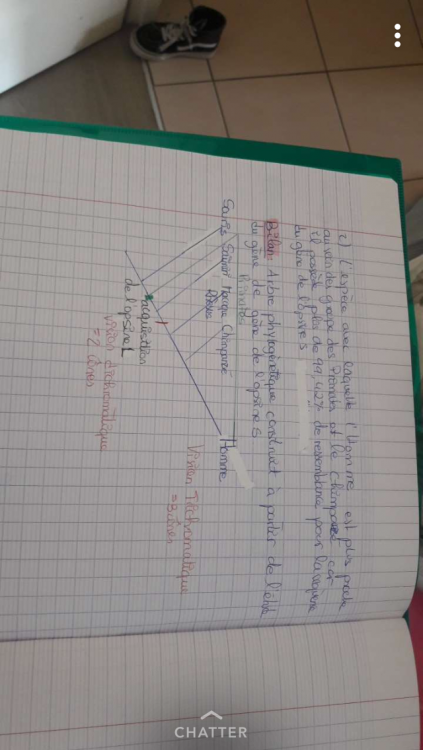 2) L'espèce avec laquelle l'Homme est plus proche
au sein du groupe des Primates est le Chimpanzé car
il possède plus de 99,42% de ressemblance pour la séquence
du gène de l'opsine S
Bilan: Arbre phylogénétique construit à partir de l'étude
du gène de gène de l'opsine S
Primates
Souris Saïmiri Macaque Chimpanzé Homme
Rhésus
acquisition
de l'opsine L
Vision dichromatique
= 2 cônes
Vision Trichromatique
= 3 cônes
CHATTER